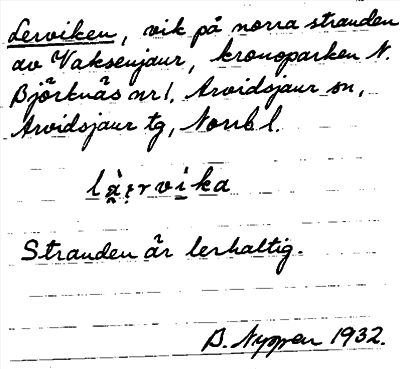 Lerviken, vik på norra stranden
av Vaksenjaur, kronoparken N.
Björknäs nr 1, Arvidsjaur sn,
Arvidsjaur tg, Norrb. l.
Stranden är lerhaltig.
B. Nyman 1932.